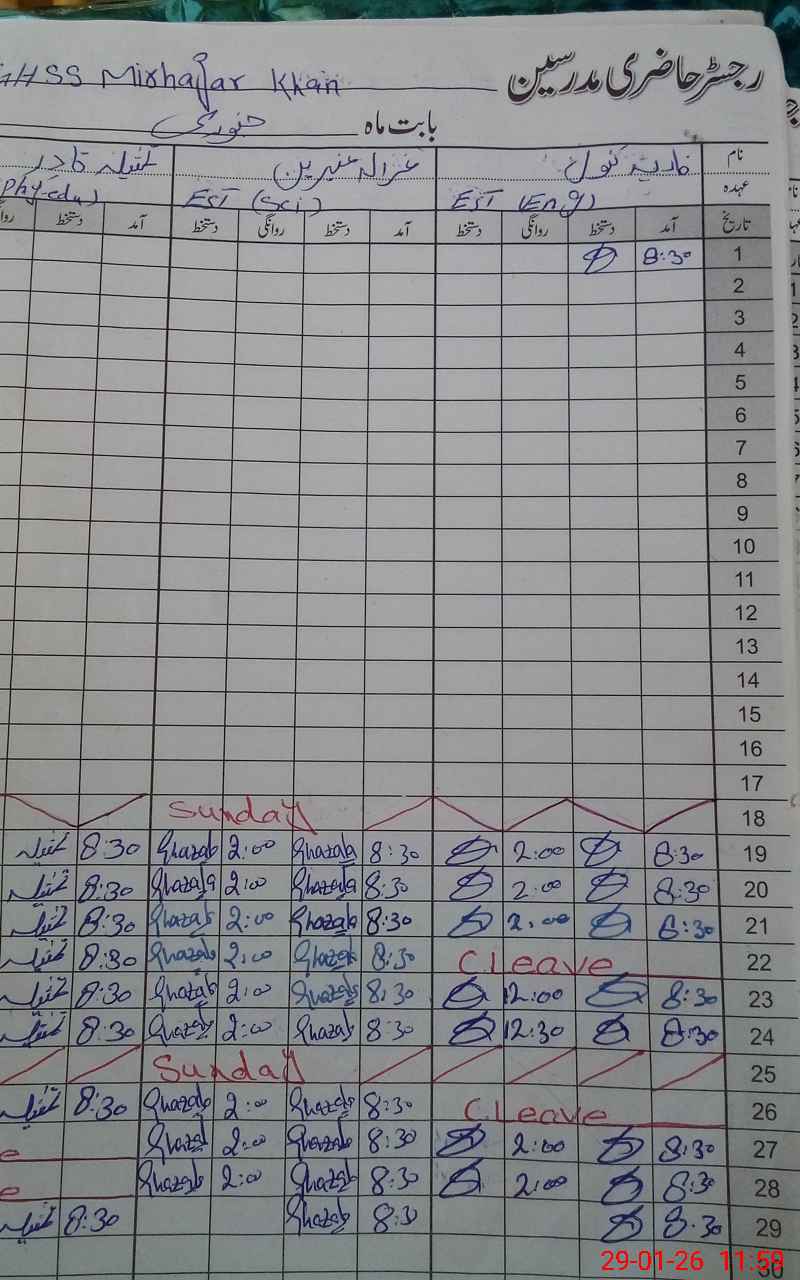 GHSS Mirhajjar Khan رجسٹر حاضری مدرسین
بابت ماہ جنوری
نام نادیہ کنول غزالہ عنبرین
عہدہ EST (Eng) EST (Sci) Phy-edu)
تاریخ آمد دستخط روانگی دستخط آمد دستخط روانگی دستخط آمد دستخط
1 8:30
2
3
4
5
6
7
8
9
10
11
12
13
14
15
16
17
18 Sunday
19 8:30 2:00 8:30 Ghazala 2:00 Ghazala 8:30
20 8:30 2:00 8:30 Ghazala 2:00 Ghazala 8:30
21 8:30 2:00 8:30 Ghazala 2:00 Ghazala 8:30
22 C Leave 8:30 Ghazala 2:00 Ghazala 8:30
23 8:30 12:00 8:30 Ghazala 2:00 Ghazala 8:30
24 8:30 12:30 8:30 Ghazala 2:00 Ghazala 8:30
25 Sunday
26 C Leave 8:30 Ghazala 2:00 Ghazala 8:30
27 8:30 2:00 8:30 Ghazala 2:00 Ghazal
28 8:30 2:00 8:30 Ghazala 2:00 Ghazala
29 8:30 8:30 Ghazala 8:30
30
29-01-26 11:59